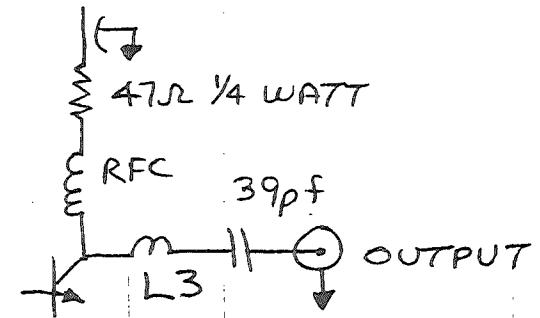 47Ω ¼ WATT
RFC
39pf
OUTPUT
L3